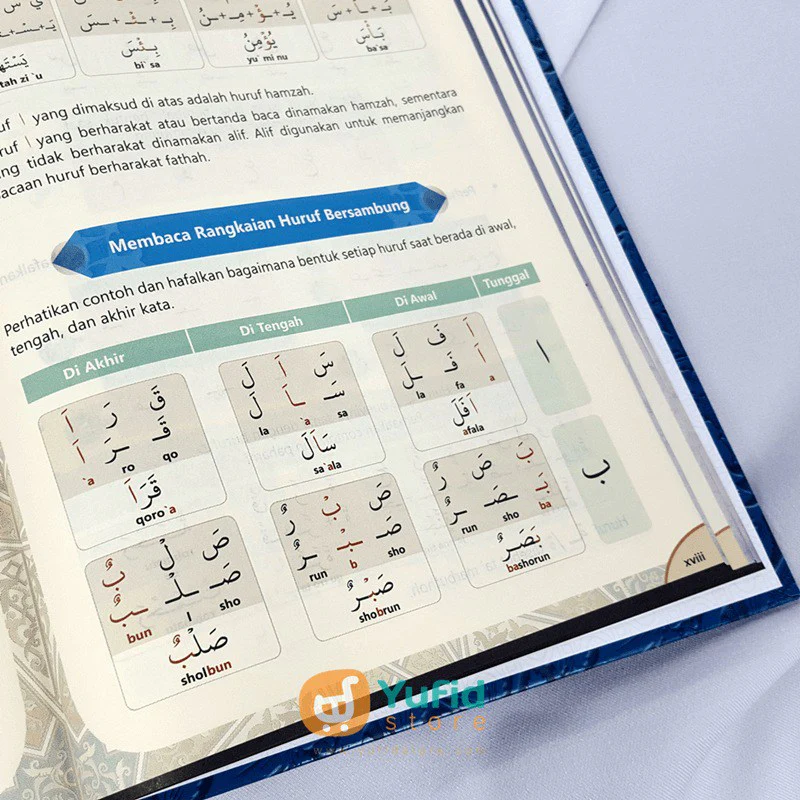 بِـ + ـئْـ + ـسَ
يُـ + ـؤْ + مِـ + ـنُ
بَـ + ـأْ + سَ
بِئْسَ
يُؤْمِنُ
بَأْسَ
tah zi `u
bi` sa
yu` mi nu
ba`sa
ا yang dimaksud di atas adalah huruf hamzah.
ا yang berharakat atau bertanda baca dinamakan hamzah, sementara
tidak berharakat dinamakan alif. Alif digunakan untuk memanjangkan
huruf berharakat fathah.
Membaca Rangkaian Huruf Bersambung
Perhatikan contoh dan hafalkan bagaimana bentuk setiap huruf saat berada di awal,
tengah, dan akhir kata.
Di Akhir Di Tengah Di Awal Tunggal
ا
اَ فَ لَ
اَ فَـ ـلَ
la fa a
اَفَلَ
afala
سَ اَ لَ
سَـ ـاَ لَ
la `a sa
سَاَلَ
sa`ala
قَ رَ اَ
قَـ ـرَ اَ
`a ro qo
قَرَاَ
qoro`a
ب
بَ صَ رٌ
بَـ ـصَـ ـرٌ
run sho ba
بَصَرٌ
bashorun
صَ بْ رٌ
صَـ ـبْـ ـرٌ
run b sho
صَبْرٌ
shobrun
صَ لْ بٌ
صَـ ـلْـ ـبٌ
bun l sho
صَلْبٌ
sholbun
xviii
Yufid
store